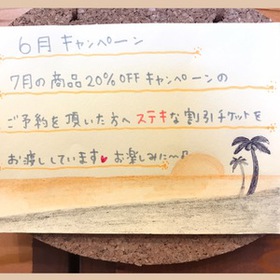 6月 キャンペーン
7月の商品20%OFFキャンペーンの
ご予約を頂いた方へステキな割引チケットを
お渡ししています♥お楽しみに〜♪